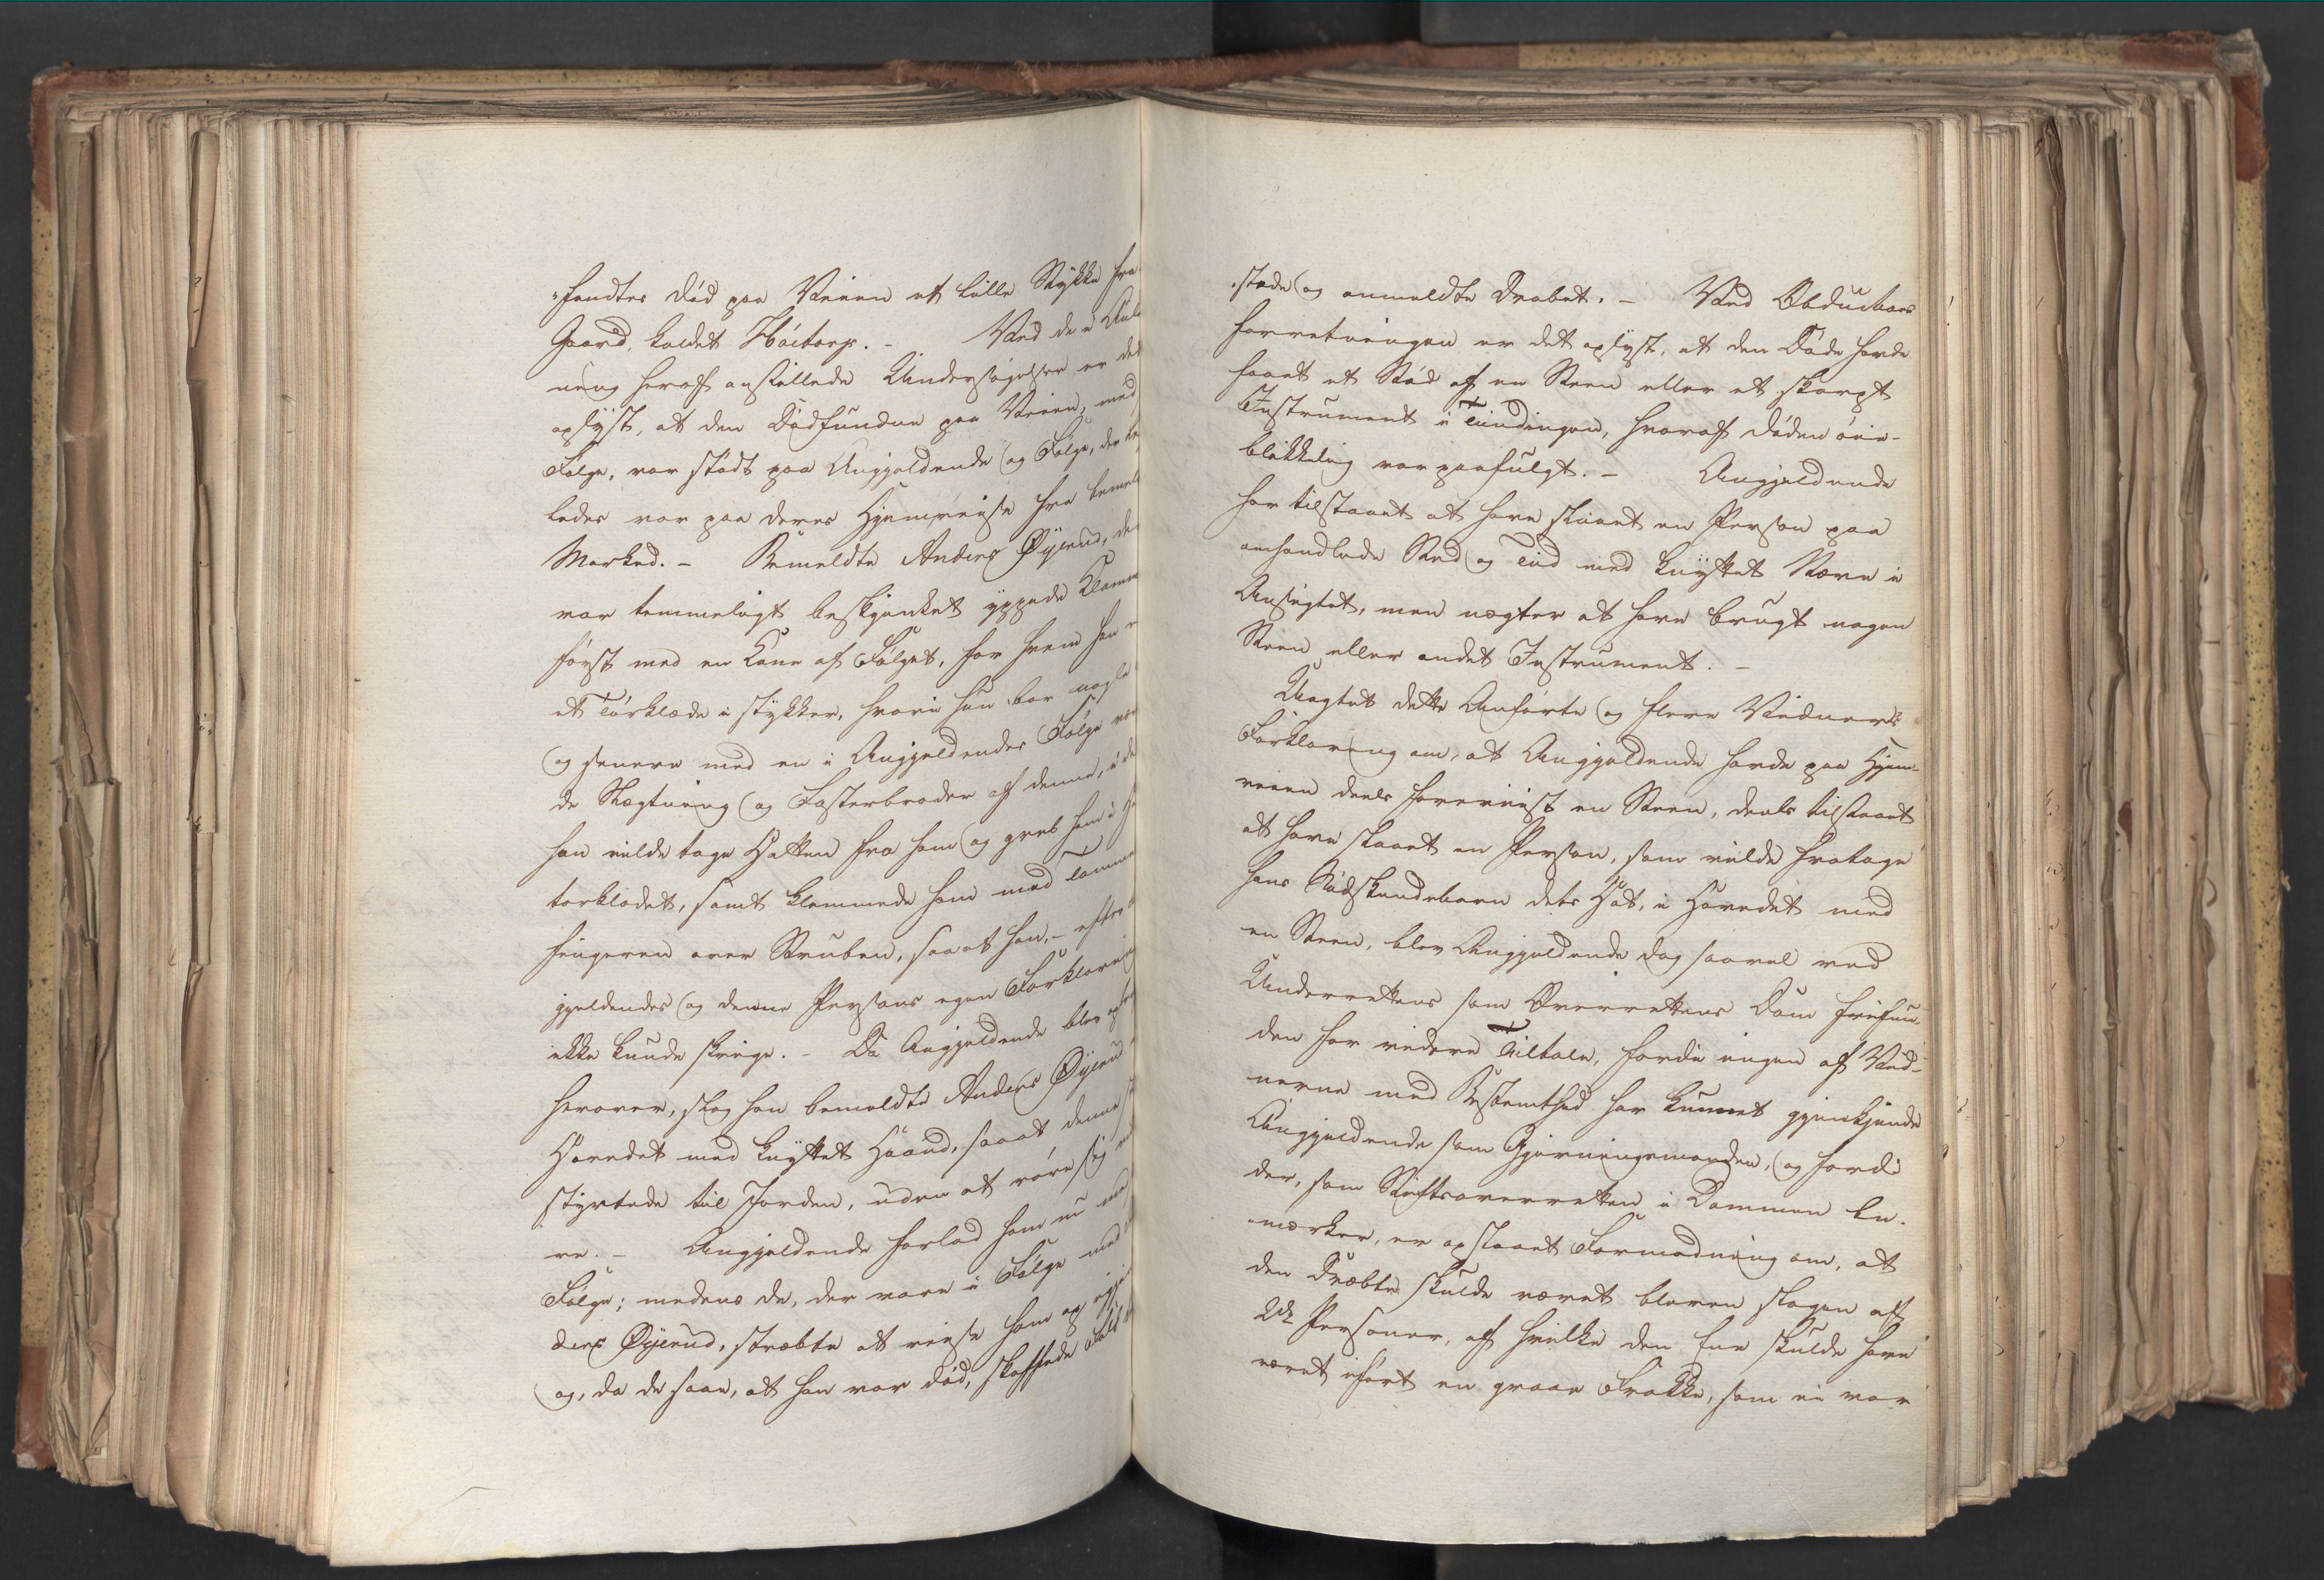 fandtes död paa Veien et lille Stykke fra
Gaard, kaldet Höitorp. - Ved de i Anled
ning heraf anstillede Undersögelser er det
oplyst, at den Dödfundne paa Veien, med
Fölge, var stödt paa Angjeldende og Fölge, der
ledes var paa deres Hjemreise fra
Marked. - Bemeldte Anders Öyerud, der
var temmeligt beskjenket yppede Klam
först med en Kone af Fölget, for hvem han
et Törklæde i stykker, hvori hun bar nogle
og senere med en i Angjeldendes Fölge
de Slægtning og Fosterbroder af denne, i
han vilde tage Hatten fra ham og greb ham i
törklædet, samt klemmede ham med Tomme
fingeren over Struben, saa at han, - efter
gjeldendes og denne Persons egen Forklaring
ikke kunde skrige. - Da Angjeldende blev
herover, slog han bemeldte Anders Öyerud
Hovedet med knyttet Haand, saaat denne
styrtede til Jorden, uden at röre sig
re. - Angjeldende forlod ham nu med
Fölge; medens de, der vare i Fölge med
ders Öyerud, stræbte at reise ham op igjen
og, da de saae, at han var död, skaffede Folk
stede og anmeldte Drabet. - Ved Obductions
forretningen er det oplyst, at den Döde havde
faaet et Stöd af en Steen eller et skarpt
Instrument i Tindingen, hvoraf Döden öie-
blikkelig var paafulgt. - Angjeldende
har tilstaaet at have slaaet en Person paa
omhandlede Sted og Tid med knyttet Næve i
Ansigtet, men nægter at have brugt nogen
Steen eller andet Instrument. -
Uagtet dette Anförte og flere Vidners
Forklaring om, at Angjeldende havde paa Hjem-
veien deels foreviist en Steen, deels tilstaaet
at have slaaet en Person, som vilde fratage
hans Södskendebarn dets Hat, i Hovedet med
en Steen, blev Angjeldende dog saavel ved
Underrettens som Overrettens Dom frifun-
den for videre Tiltale, fordi ingen af Vid-
nerne med Bestemthed har kunnet gjenkjende
Angjeldende som Gjerningsmanden, og fordi
der, som Stiftsoverretten i Dommen be-
mærker, er opstaaet Formodning om, at
den Dræbte skulde været bleven slagen af
2de Personer, af hvilke den Ene skulde have
været ifört en graae Frakke, som ei var